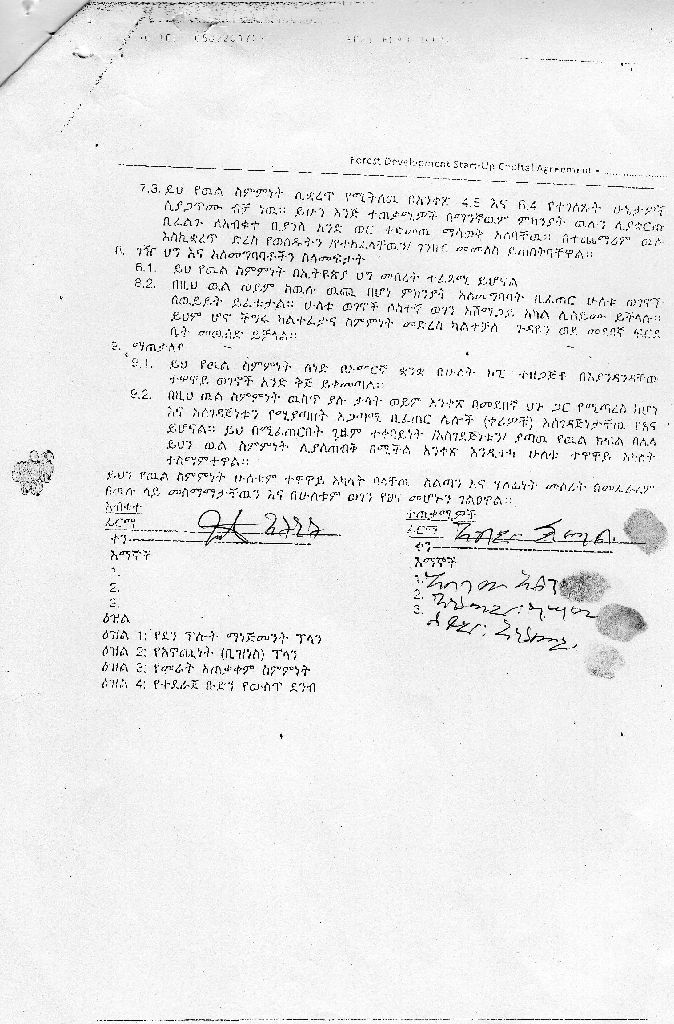 Forest Development Start-Up Capital Agreement
7.3. ይህ የዉል ስምምነት ሊቋረጥ የሚችለዉ በአንቀጽ 4.5 እና 6.4 የተገለፁት ሁኔታዎች
ሲያጋጥሙ ብቻ ነዉ። ይሁን እንጅ ተጠቃሚዎች በማንኛዉም ምክንያት ዉሉን ሊያቋርጡ
ቢፈልጉ ለአብቁተ ቢያንስ አንድ ወር ተቀድመዉ ማሳወቅ አለባቸዉ። በተጨማሪም ዉሉ
እስኪቋረጥ ድረስ የወሰዱትን /የተከፈላቸዉን/ ገንዘብ መመለስ ይጠበቅባቸዋል።
8. ገዥ ህግ እና አለመግባባቶችን ስለመፍታት
8.1. ይህ የዉል ስምምነት በኢትዮጵያ ህግ መሰረት ተፈፃሚ ይሆናል
8.2. በዚህ ዉል ወይም ከዉሉ ዉጪ በሆነ ምክንያት አለመግባባት ቢፈጠር ሁለቱ ወገኖች
በዉይይት ይፈቱታል። ሁለቱ ወገኖች ሶስተኛ ወገን አሸማጋይ አካል ሊሰይሙ ይችላሉ።
ይህም ሆኖ ችግሩ ካልተፈታና ስምምነት መድረስ ካልተቻለ ጉዳዩን ወደ መደበኛ ፍርድ
ቤት መዉሰድ ይቻላል።
9. ማጠቃለያ
9.1. ይህ የዉል ስምምነት ሰነድ በአማርኛ ቋንቋ በሁለት ኮፒ ተዘጋጅቶ በእያንዳንዳቸው
ተዋዋይ ወገኖች አንድ ቅጅ ይቀመጣል።
9.2. በዚህ ዉል ስምምነት ዉስጥ ያሉ ቃላት ወይም አንቀጽ በመደበኛ ህጉ ጋር የሚጣረስ ከሆነ
እና አስገዳጅነቱን የሚያጣበት አጋጣሚ ቢፈጠር ሌሎች (ቀሪዎቹ) አስገዳጅነታቸዉ የፀና
ይሆናል። ይህ በሚፈጠርበት ጊዜም ተቀባይነት /አስገዳጅነቱን/ ያጣዉ የዉል ክፍል በሌላ
ይህን ዉል ስምምነት ሊያስጠብቅ በሚችል አንቀጽ እንዲተካ ሁለቱ ተዋዋይ አካላት
ተስማምተዋል።
ይህን የዉል ስምምነት ሁለቱም ተዋዋይ አካላት ባላቸዉ ስልጣን እና ሃላፊነት መሰረት በመፈራረም
በዉሉ ላይ መስማማታቸዉን እና በሁለቱም ወገን የፀና መሆኑን ገልፀዋል።
አብቁተ
ፊርማ
ቀን
እማኞች
1.
2.
3.
ተጠቃሚዎች
ፊርማ
ቀን
እማኞች
1.
2.
3.
ዕዝል
ዕዝል 1: የደን ፕሎት ማነጅመንት ፕላን
ዕዝል 2: የአዋጪነት (ቢዝነስ) ፕላን
ዕዝል 3: የመሬት አጠቃቀም ስምምነት
ዕዝል 4: የተደራጀ ቡድን የውስጥ ደንብ